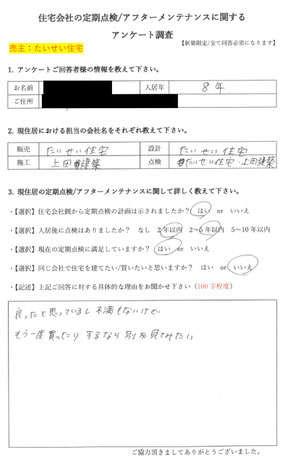 住宅会社の定期点検/アフターメンテナンスに関する
アンケート調査
【新築限定/全て回答必須になります】
売主：たいせい住宅
1. アンケートご回答者様の情報を教えて下さい。
お名前 入居年 8年
ご住所
2. 現住居における担当の会社名をそれぞれ教えて下さい。
販売 たいせい住宅 設計 たいせい住宅
施工 上田建築 点検 たいせい住宅・上田建築
3. 現住居の定期点検/アフターメンテナンスに関して詳しく教えて下さい。
・【選択】住宅会社側から定期点検の計画は示されましたか？ はい or いいえ
・【選択】入居後に点検はありましたか？ なし 2年以内 2～5年以内 5～10年以内
・【選択】現在の定期点検に満足していますか？ はい or いいえ
・【選択】同じ会社で住宅を建てたい/買いたいと思いますか？ はい or いいえ
・【記述】上記ご回答に対する具体的な理由をお聞かせ下さい（100字程度）
良かったと思っているし不満もないけど
もう一度買ったりするなら別が見てみたい
ご協力頂きましてありがとうございました。